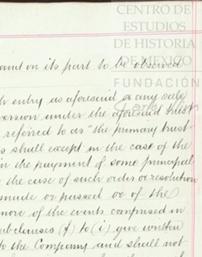 CENTRO DE
ESTUDIOS
DE HISTORIA
DE MÉXICO
FUNDACIÓN
Carlos Slim
on its part to be observed
entry as aforesaid or any sale
under the aforesaid trust
referred to as "the primary trust
shall except in the case of the
in the payment of some principal
the case of such order or resolution
made or passed or of the
more of the events comprised in
subclauses (f) to (i) give written
to the Company and shall not